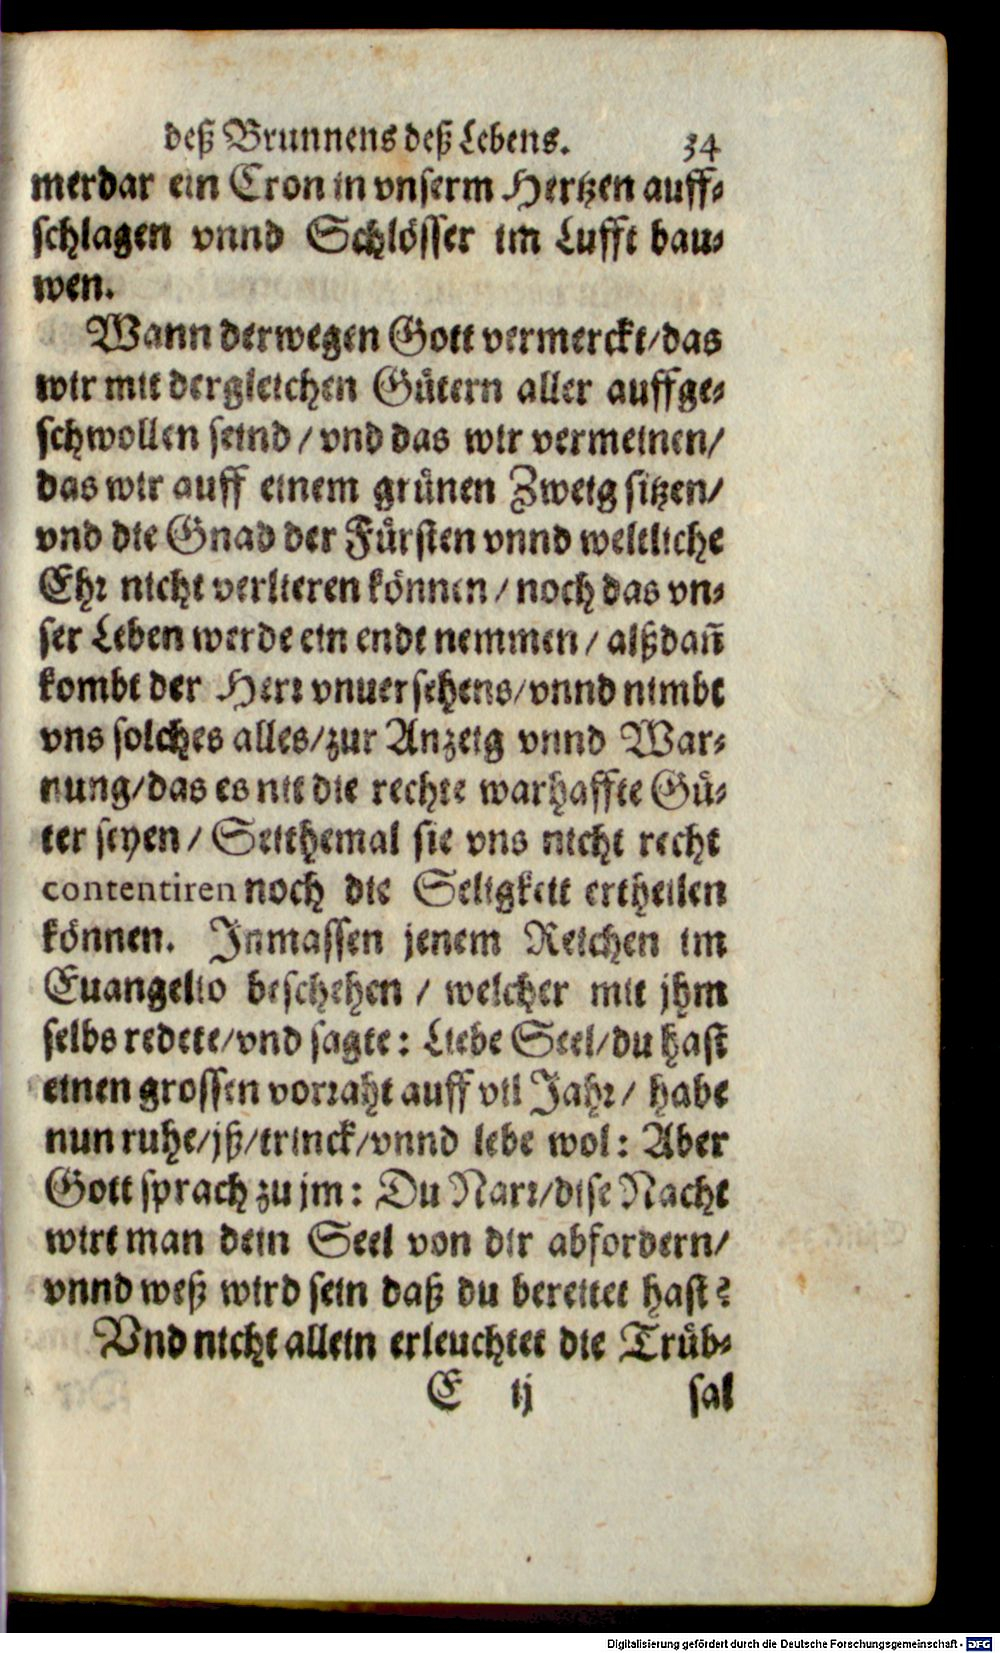 deß Brunnens deß Lebens. 34
merdar ein Cron in vnserm Hertzen auff-
schlagen vnnd Schlösser im Lufft bau-
wen.
Wann derwegen Gott vermerckt/das
wir mit dergleichen Gütern aller auffge-
schwollen seind/vnd das wir vermeinen/
das wir auff einem grünen Zweig sitzen/
vnd die Gnad der Fürsten vnnd weltliche
Ehr nicht verlieren können/noch das vn-
ser Leben werde ein ende nemmen/alßdañ
kombt der Herr vnuersehens/vnnd nimbt
vns solches alles/zur Anzeig vnnd War-
nung/das es nit die rechte warhaffte Gü-
ter seyen/Seithemal sie vns nicht recht
contentiren noch die Seligkeit ertheilen
können. Inmassen jenem Reichen im
Euangelio beschehen/welcher mit jhm
selbs redete/vnd sagte: Liebe Seel/du hast
einen grossen vorraht auff vil Jahr/habe
nun ruhe/jß/trinck/vnnd lebe wol: Aber
Gott sprach zu jm: Du Narr/dise Nacht
wirt man dein Seel von dir abfordern/
vnnd weß wird sein daß du bereitet hast?
Vnd nicht allein erleuchtet die Trüb-
E ij sal
Digitalisierung gefördert durch die Deutsche Forschungsgemeinschaft - DFG